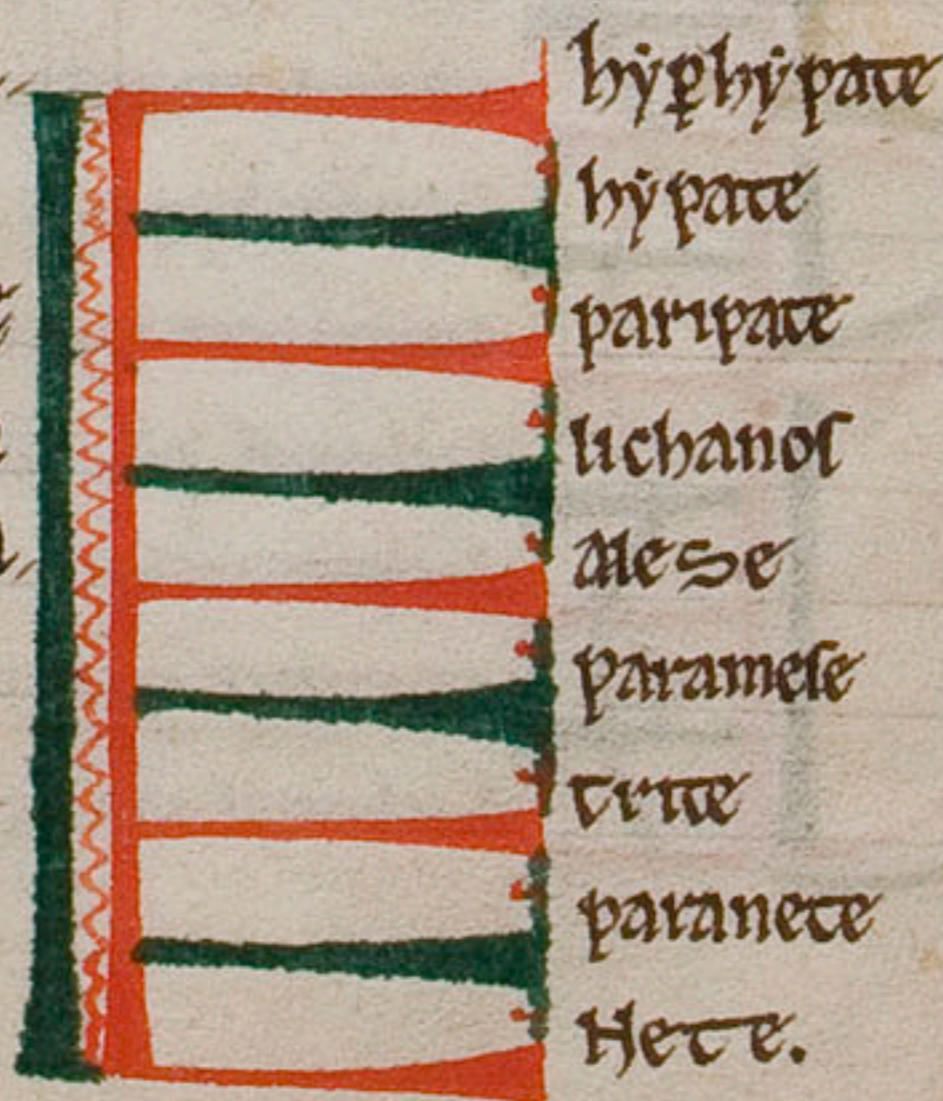 hẏꝑhẏpate
hẏpate
paripate
lichanoſ
MeSe
parameſe
trite
paranete
Nete.